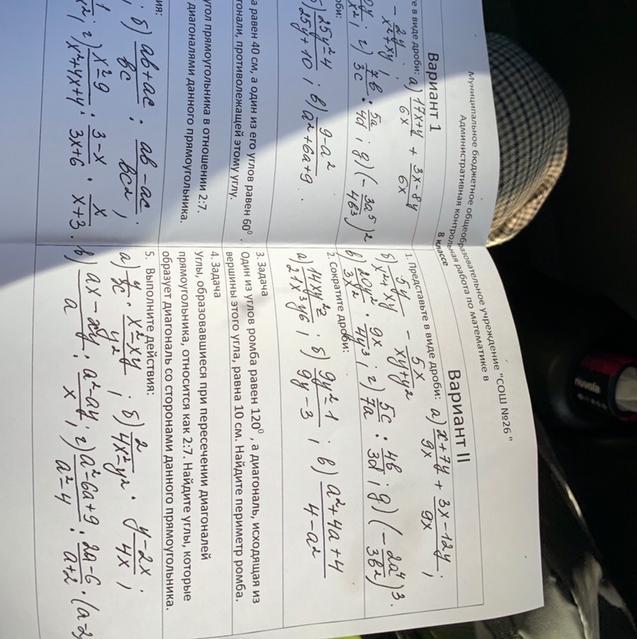 Муниципальное бюджетное общеобразовательное учреждение "СОШ №26"
Административная контрольная работа по математике в
8 классе
Вариант 1
те в виде дроби: а) (17x+y)/6x + (3x-8y)/6x
7b/3c : 5a/4d ; д) (-3a⁵/4b³)²
би:
(25y²-4)/(25y+10) ; в) (9-a²)/(a²+6a+9).
а равен 40 см, а один из его углов равен 60⁰.
гонали, противолежащей этому углу.
угол прямоугольника в отношении 2:7.
диагоналями данного прямоугольника.
ия:
; б) (ab+ac)/8c : (ab-ac)/8c² ;
г) (x²-9)/(x²+4x+4) : (3-x)/(3x+6) · x/(x+3).
Вариант II
1. Представьте в виде дроби: а) (x+7y)/9x + (3x-12y)/9x ;
б) 5y/(x²+xy) - 5x/(xy+y²)
в) 20y²/3x² · 9x/4y³ ; г) 5c/7a : 4b/3d ; д) (-2a⁴/3b²)³.
2. Сократите дроби:
а) 14xy²z/21x³y⁶ ; б) (9y²-1)/(9y-3) ; в) (a²+4a+4)/(4-a²)
3. Задача
Один из углов ромба равен 120⁰, а диагональ, исходящая из
вершины этого угла, равна 10 см. Найдите периметр ромба.
4. Задача
Углы, образовавшиеся при пересечении диагоналей
прямоугольника, относится как 2:7. Найдите углы, которые
образует диагональ со сторонами данного прямоугольника.
5. Выполните действия:
а) y/8c · (x²-xy)/y² ; б) 2/(4x²-y²) · (y-2x)/4x ;
в) : (a²-ay)/x ; г) (a²-6a+9)/(a²-4) : (2a-6)/(a+2) · (a-2)
nuvola